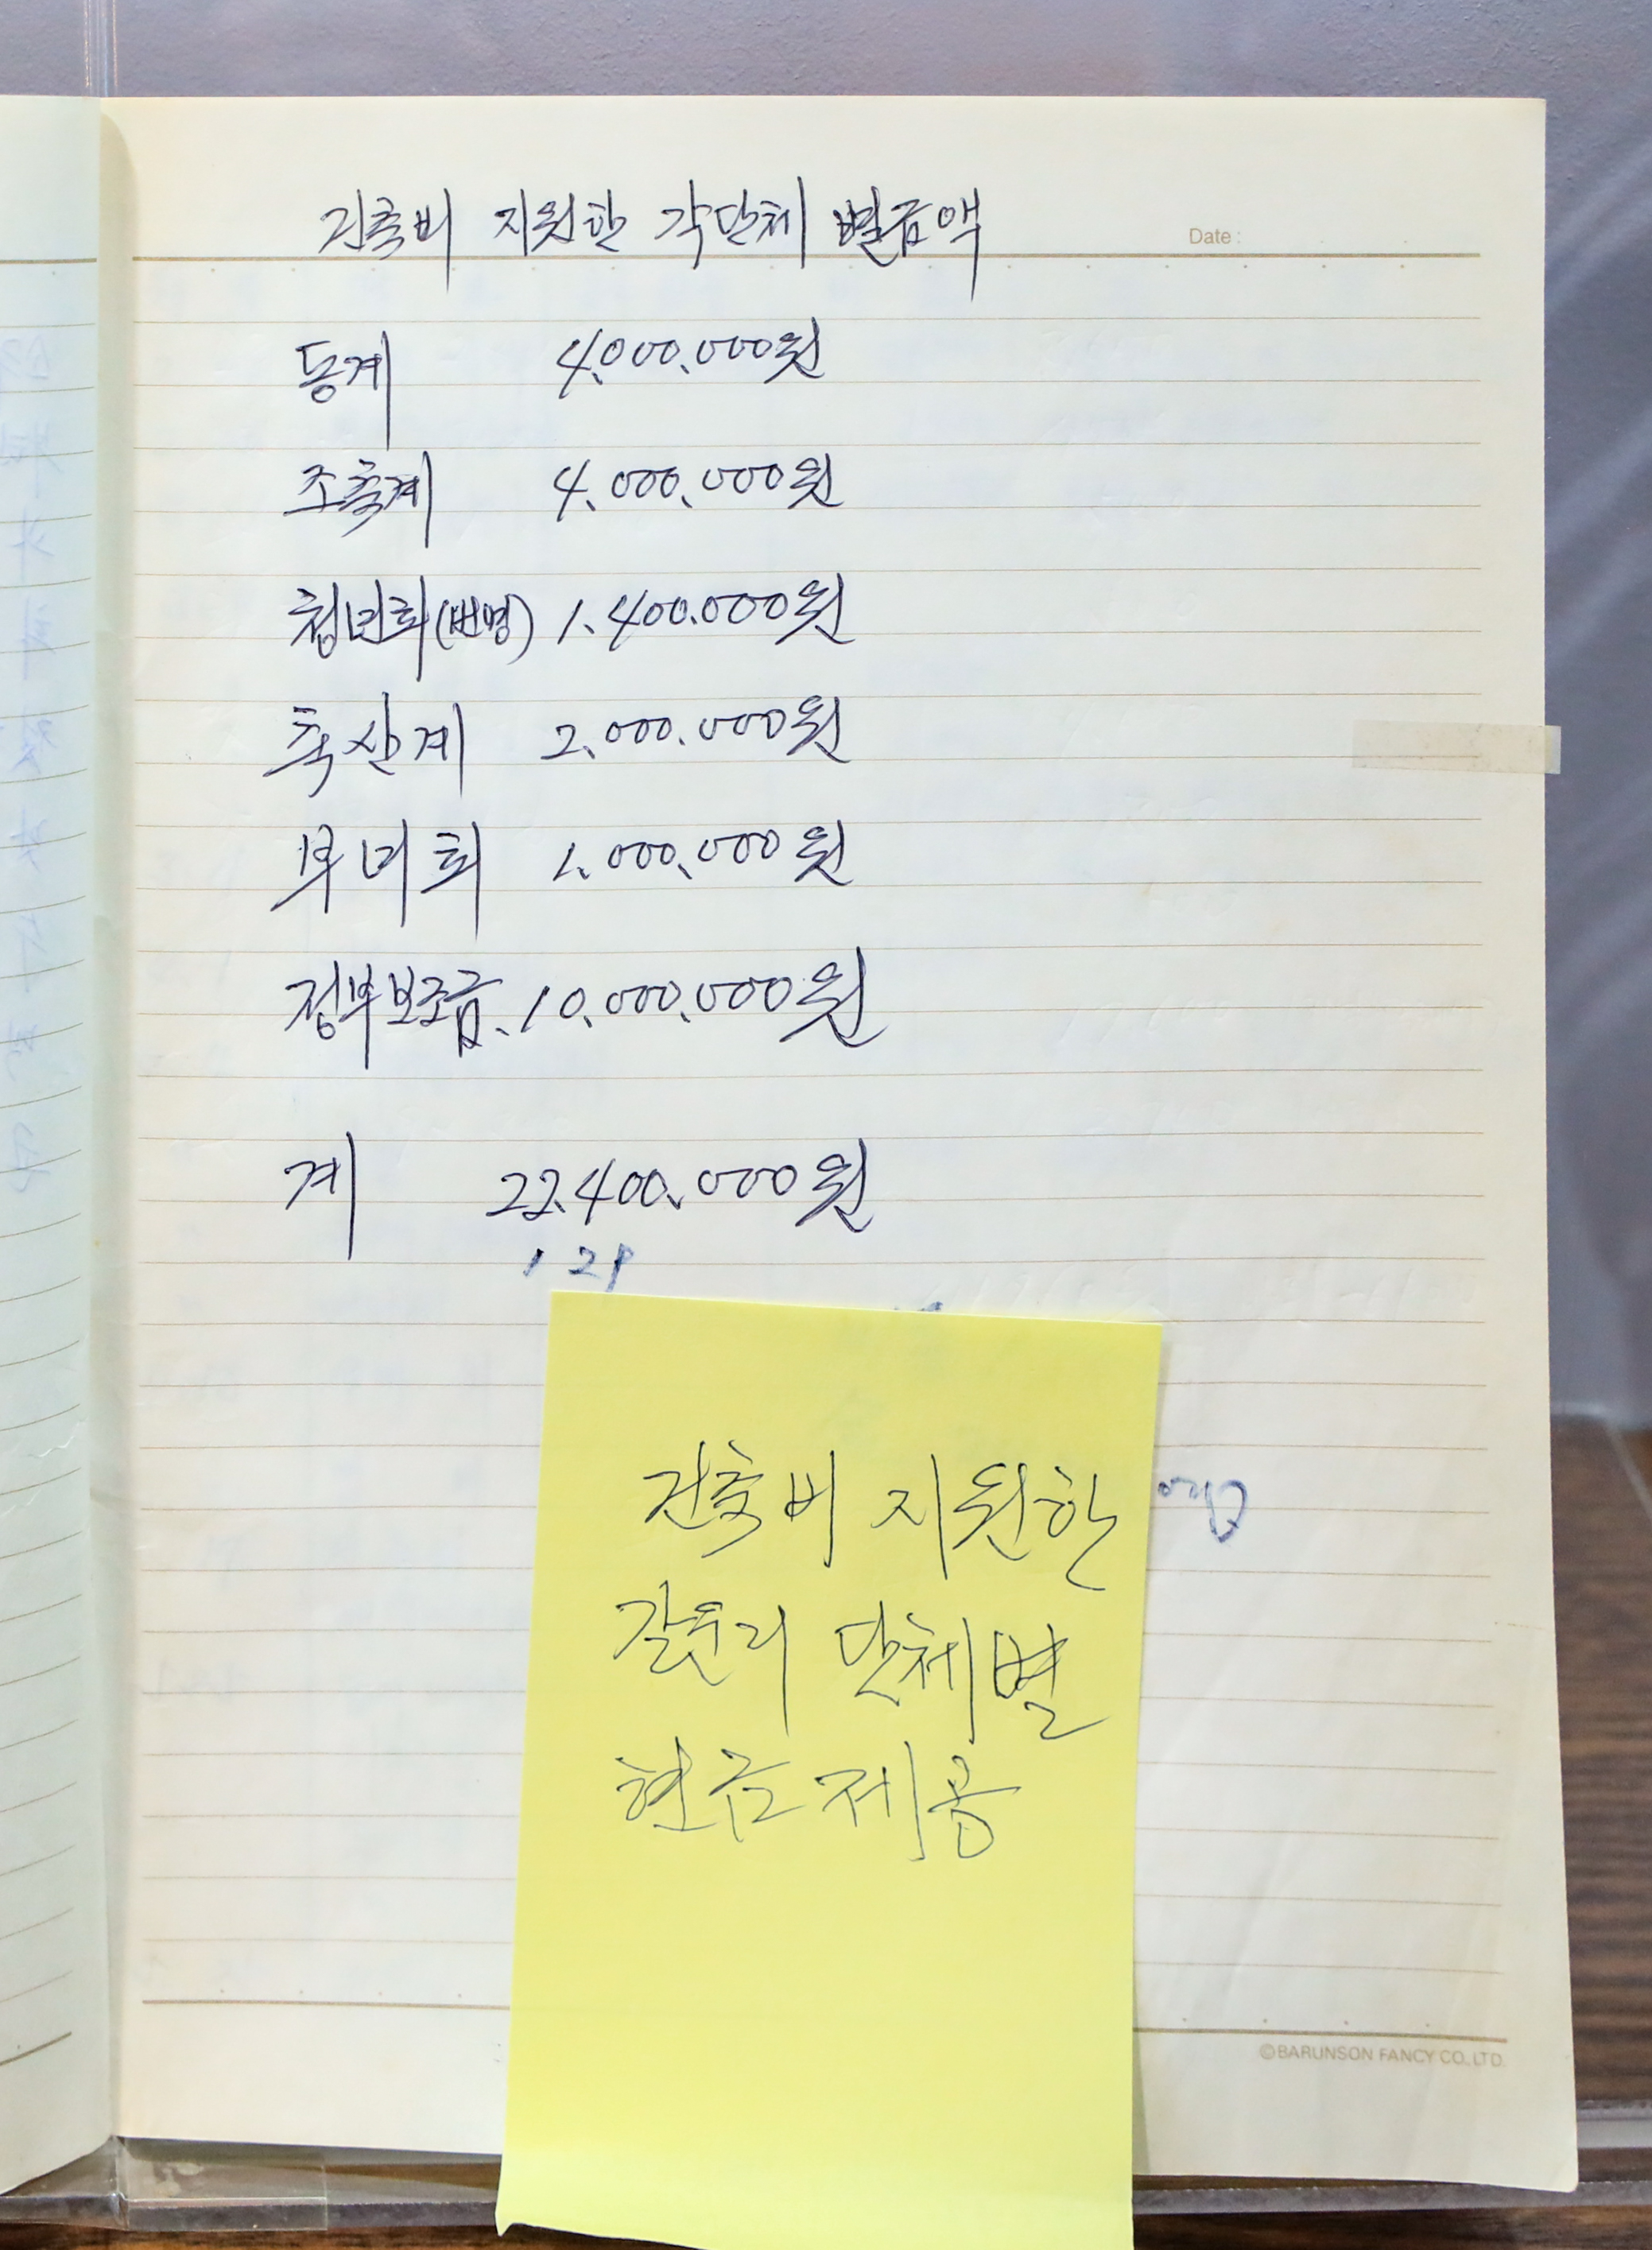 건축비 지원한 각단체 별금액
Date :
동계 4.000.000원
조축계 4.000.000원
청년회(번영) 1.400.000원
축산계 2.000.000원
부녀회 1.000.000원
정부보조금. 10.000.000원
계 22.400.000원
건축비 지원한
갈둔리 단체별
현금제공
©BARUNSON FANCY CO., LTD.